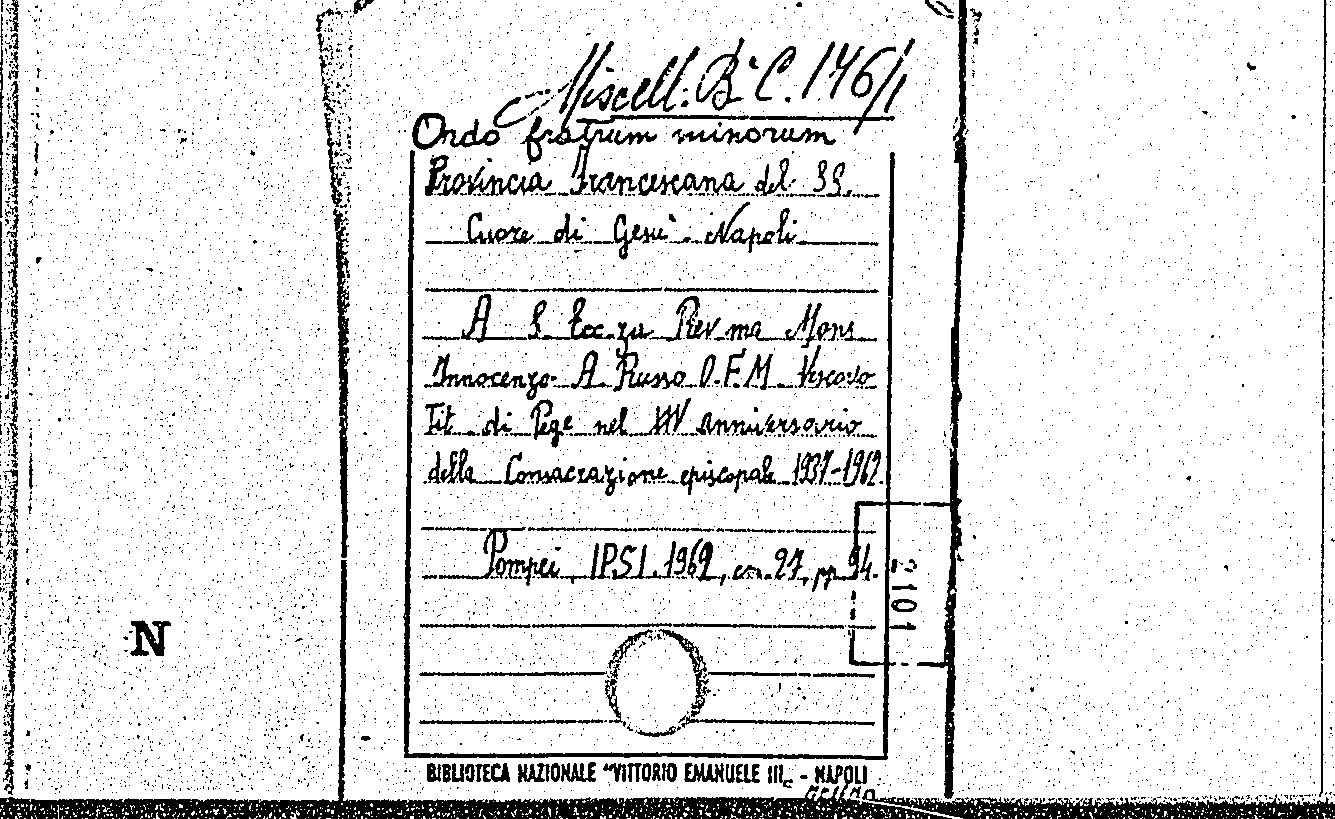 Miscell. Bª C. 146/1
Ordo fratrum minorum
Provincia Francescana del SS.
Cuore di Gesù. Napoli
A S. Ecc.za Rev.ma Mons
Innocenzo A. Russo O.F.M. Vescovo
Tit. di Pege nel XXV anniversario
della Consacrazione episcopale 1937-1962.
Pompei, IPSI. 1962, cm. 27, pp 94.
2101
N
BIBLIOTECA NAZIONALE "VITTORIO EMANUELE III" - NAPOLI